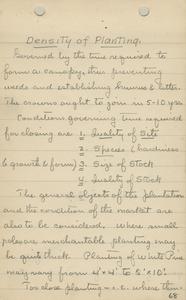 Density of Planting.
Governed by the time required to
form a canopy, thus preventing
weeds and establishing humus & litter.
The crowns ought to join in 5-10 yrs.
Conditions governing time required
for closing are 1. Quality of Site
2. Species (hardiness
& growth & form) 3. Size of Stock
4. Quality of Stock
The general objects of the plantation
and the condition of the market are
also to be considered. Where small
poles are merchantable planting may
be quite thick. Planting of White Pine
may vary from 4'x4' to 8'x10'.
Too close planting = i.e. where there
68